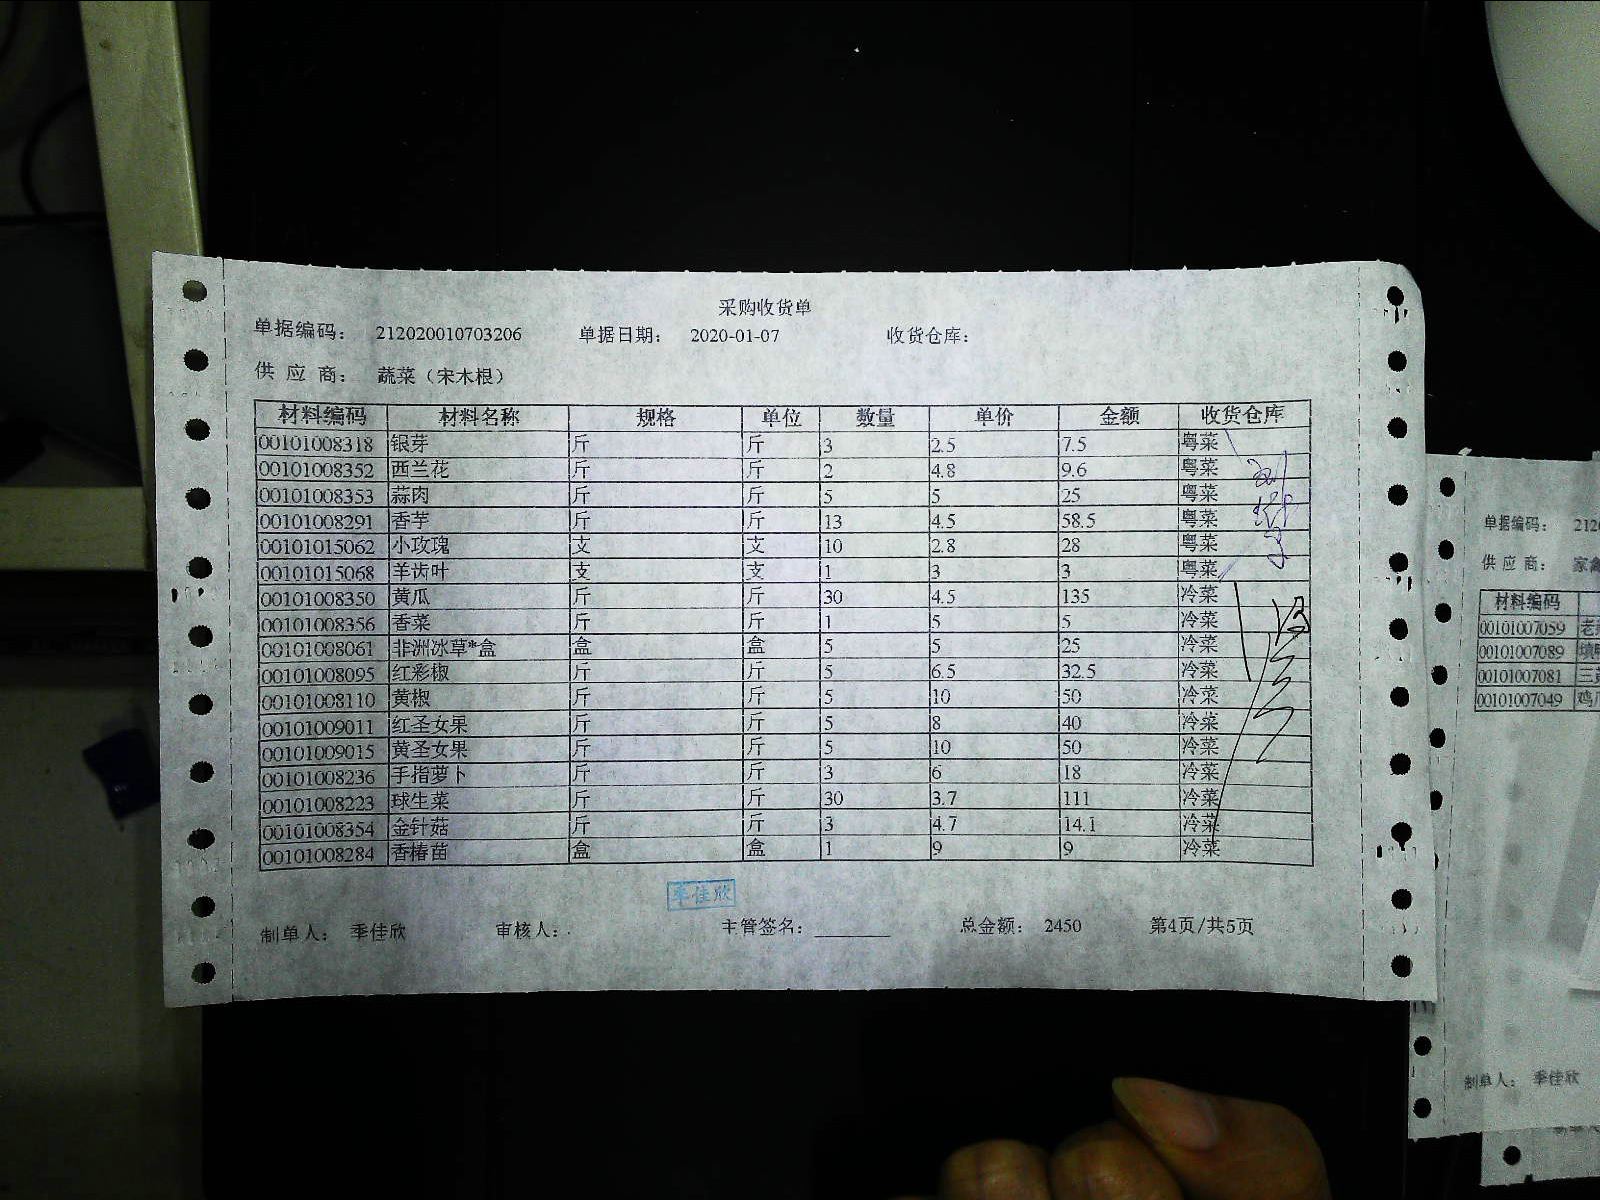 采购收货单
单据编码： 212020010703206 单据日期： 2020-01-07 收货仓库：
供 应 商： 蔬菜（宋木根）
材料编码 材料名称 规格 单位 数量 单价 金额 收货仓库
00101008318 银芽 斤 斤 3 2.5 7.5 粤菜
00101008352 西兰花 斤 斤 2 4.8 9.6 粤菜
00101008353 蒜肉 斤 斤 5 5 25 粤菜
00101008291 香芋 斤 斤 13 4.5 58.5 粤菜
00101015062 小玫瑰 支 支 10 2.8 28 粤菜
00101015068 羊齿叶 支 支 1 3 3 粤菜
00101008350 黄瓜 斤 斤 30 4.5 135 冷菜
00101008356 香菜 斤 斤 1 5 5 冷菜
00101008061 非洲冰草*盒 盒 盒 5 5 25 冷菜
00101008095 红彩椒 斤 斤 5 6.5 32.5 冷菜
00101008110 黄椒 斤 斤 5 10 50 冷菜
00101009011 红圣女果 斤 斤 5 8 40 冷菜
00101009015 黄圣女果 斤 斤 5 10 50 冷菜
00101008236 手指萝卜 斤 斤 3 6 18 冷菜
00101008223 球生菜 斤 斤 30 3.7 111 冷菜
00101008354 金针菇 斤 斤 3 4.7 14.1 冷菜
00101008284 香椿苗 盒 盒 1 9 9 冷菜
季佳欣
制单人： 季佳欣 审核人： 主管签名： 总金额： 2450 第4页/共5页
单据编码： 2120
供 应 商： 家禽
材料编码
00101007059 老
00101007089 填鸭
00101007081 三黄
00101007049 鸡
制单人： 季佳欣